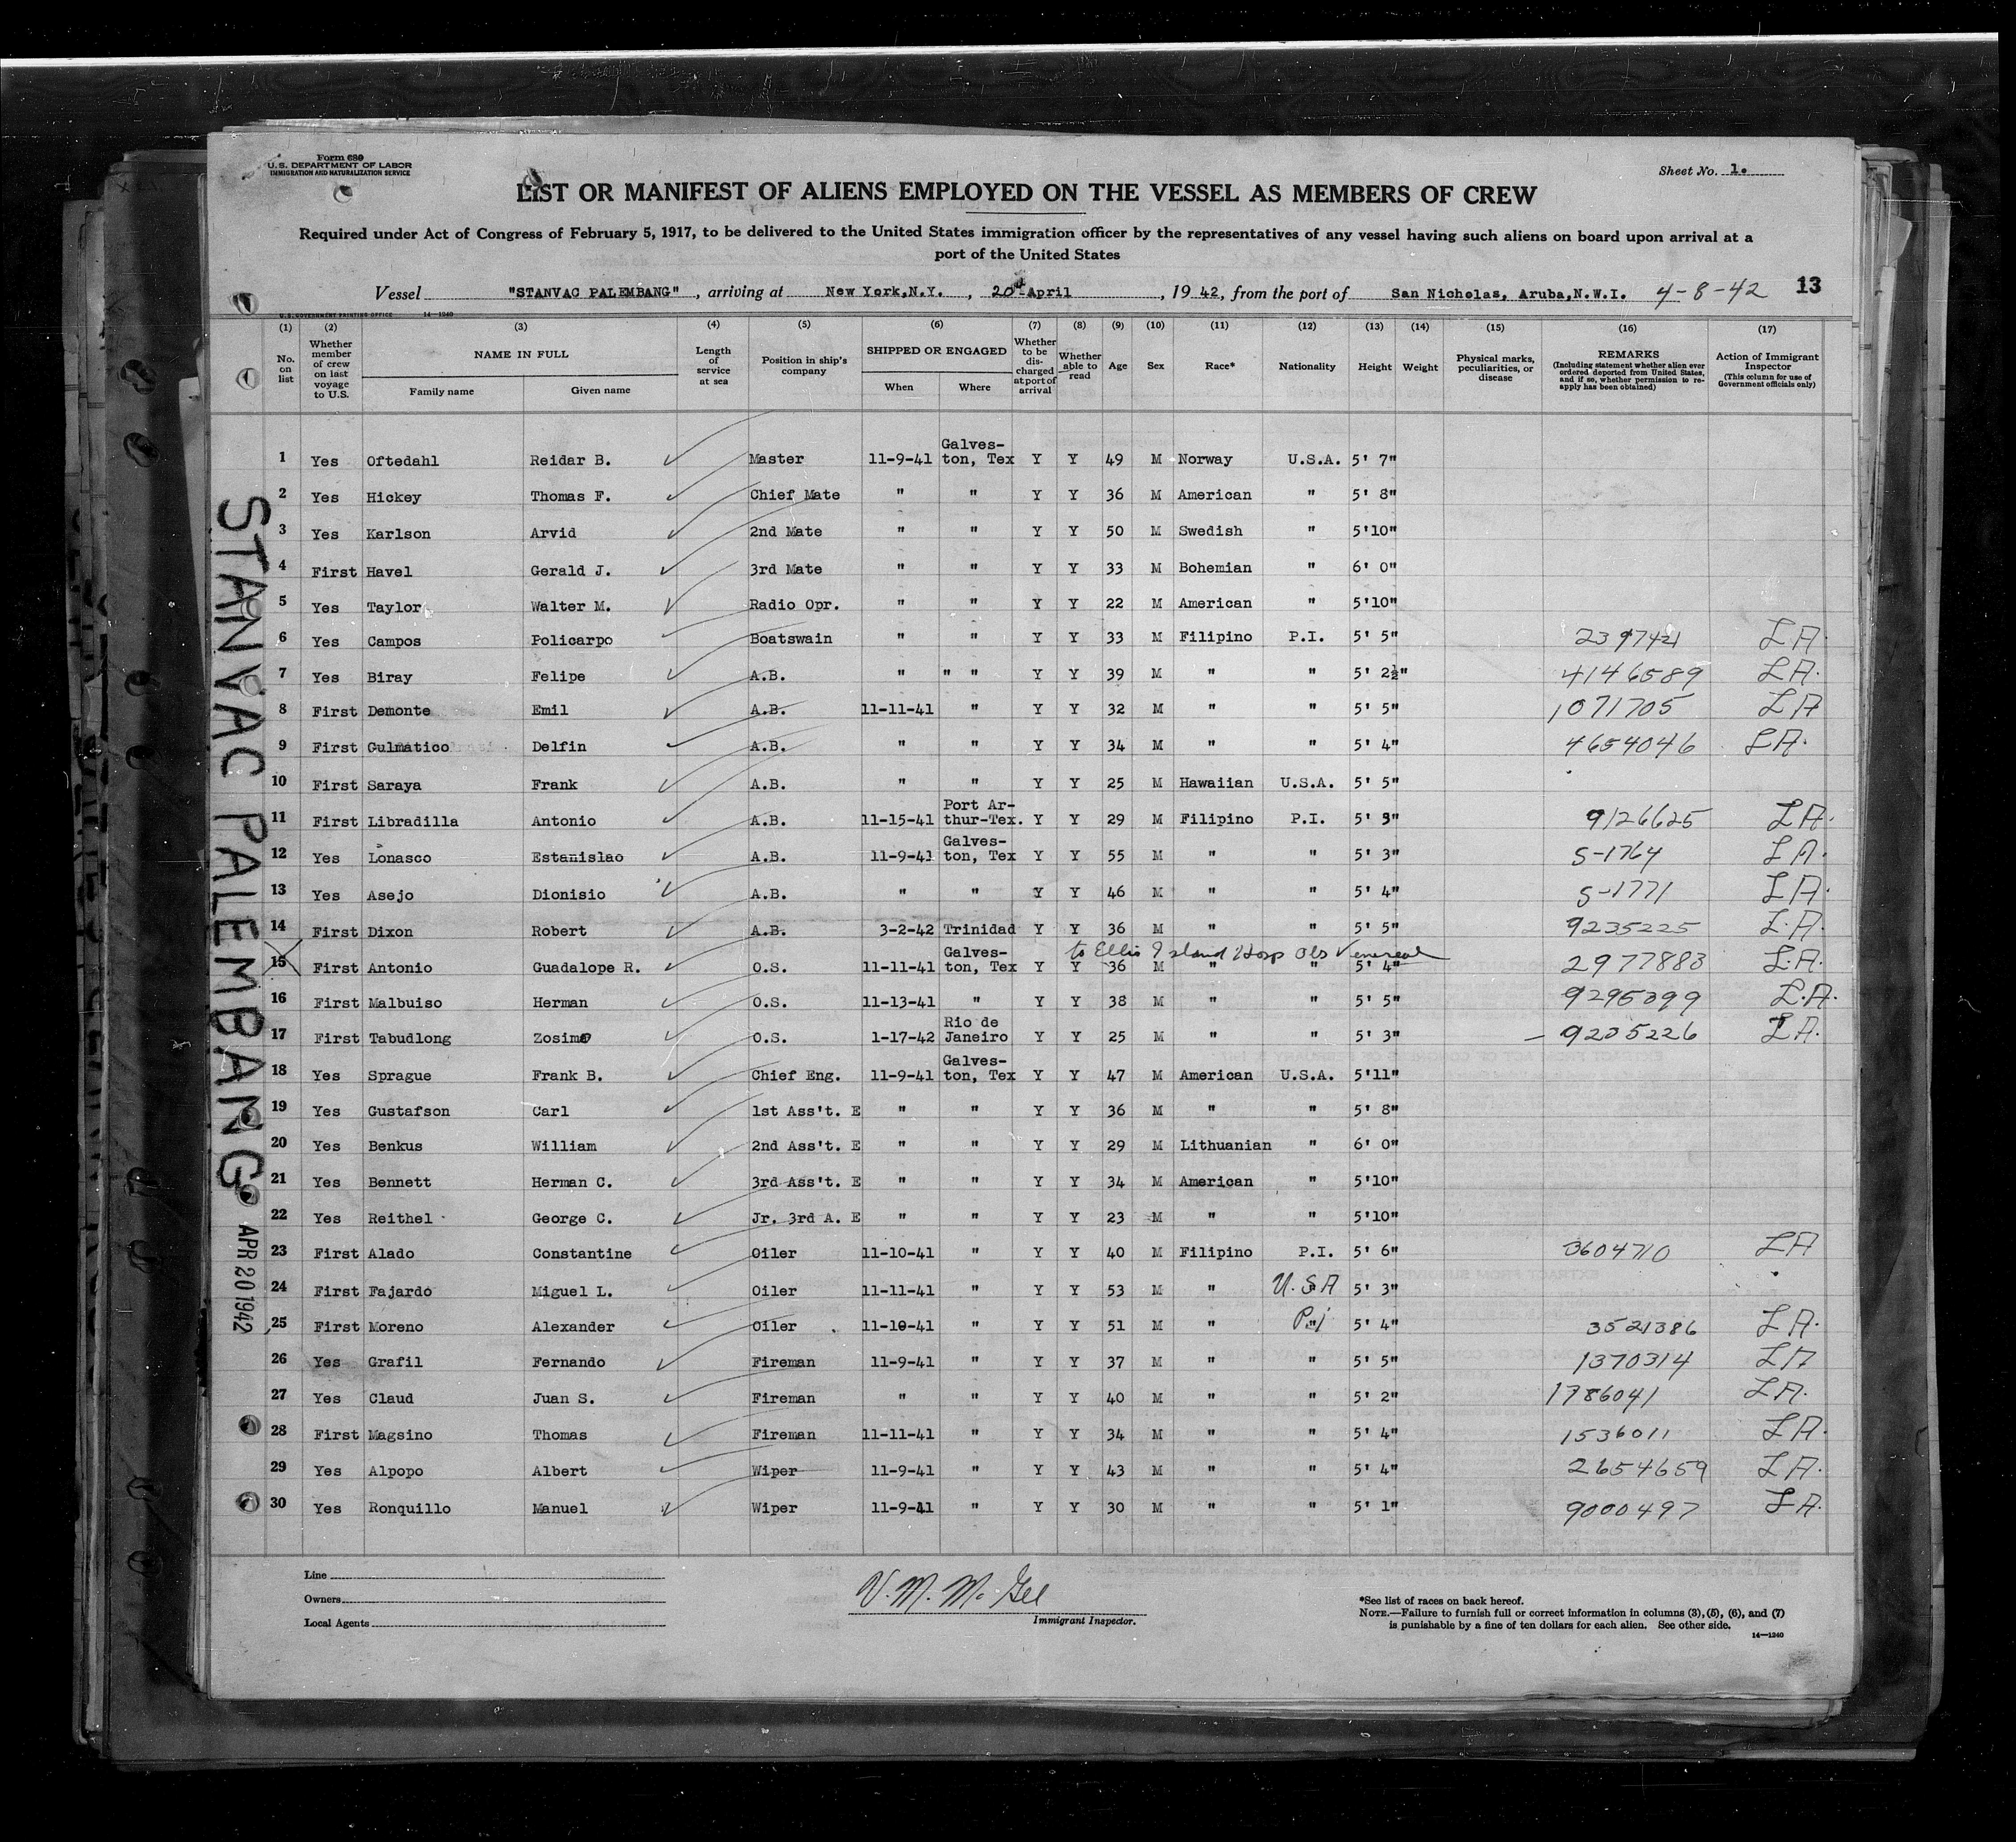 Form 680
U.S. DEPARTMENT OF LABOR
IMMIGRATION AND NATURALIZATION SERVICE
Sheet No. 1.
LIST OR MANIFEST OF ALIENS EMPLOYED ON THE VESSEL AS MEMBERS OF CREW
Required under Act of Congress of February 5, 1917, to be delivered to the United States immigration officer by the representatives of any vessel having such aliens on board upon arrival at a
port of the United States
Vessel "STANVAC PALEMBANG" , arriving at New York,N.Y. , 20 April , 19 42, from the port of San Nicholas, Aruba,N.W.I. 4-8-42 13
U.S. GOVERNMENT PRINTING OFFICE 14-1240
(1) (2) (3) (4) (5) (6) (7) (8) (9) (10) (11) (12) (13) (14) (15) (16) (17)
No. on list
Whether member of crew on last voyage to U.S.
NAME IN FULL
Family name Given name
Length of service at sea
Position in ship's company
SHIPPED OR ENGAGED
When Where
Whether to be discharged at port of arrival
Whether able to read
Age Sex Race* Nationality Height Weight
Physical marks, peculiarities, or disease
REMARKS
(Including statement whether alien ever ordered deported from United States, and if so, whether permission to reapply has been obtained)
Action of Immigrant Inspector
(This column for use of Government officials only)
1 Yes Oftedahl Reidar B. Master 11-9-41 Galves-ton, Tex Y Y 49 M Norway U.S.A. 5' 7"
2 Yes Hickey Thomas F. Chief Mate " " Y Y 36 M American " 5' 8"
3 Yes Karlson Arvid 2nd Mate " " Y Y 50 M Swedish " 5'10"
4 First Havel Gerald J. 3rd Mate " " Y Y 33 M Bohemian " 6' 0"
5 Yes Taylor Walter M. Radio Opr. " " Y Y 22 M American " 5'10"
6 Yes Campos Policarpo Boatswain " " Y Y 33 M Filipino P.I. 5' 5" 2397421 L A.
7 Yes Biray Felipe A.B. " " " Y Y 39 M " " 5' 2½" 4146589 L A.
8 First Demonte Emil A.B. 11-11-41 " Y Y 32 M " " 5' 5" 1071705 L A
9 First Gulmatico Delfin A.B. " " Y Y 34 M " " 5' 4" 4654046 L A.
10 First Saraya Frank A.B. " " Y Y 25 M Hawaiian U.S.A. 5' 5"
11 First Libradilla Antonio A.B. 11-15-41 Port Ar-thur-Tex. Y Y 29 M Filipino P.I. 5' 3" 9126625 L A.
12 Yes Lonasco Estanislao A.B. 11-9-41 Galves-ton, Tex Y Y 55 M " " 5' 3" S-1764 L A.
13 Yes Asejo Dionisio A.B. " " Y Y 46 M " " 5' 4" S-1771 L A.
14 First Dixon Robert A.B. 3-2-42 Trinidad Y Y 36 M " " 5' 5" 9235225 L.A.
to Ellis Island Hosp Obs Venereal
15 First Antonio Guadalope R. O.S. 11-11-41 Galves-ton, Tex Y Y 36 M " " 5' 4" 2977883 L.A.
16 First Malbuiso Herman O.S. 11-13-41 " Y Y 38 M " " 5' 5" 9295399 L.A.
17 First Tabudlong Zosimo O.S. 1-17-42 Rio de Janeiro Y Y 25 M " " 5' 3" - 9235226 L A.
18 Yes Sprague Frank B. Chief Eng. 11-9-41 Galves-ton, Tex Y Y 47 M American U.S.A. 5'11"
19 Yes Gustafson Carl 1st Ass't. E " " Y Y 36 M " " 5' 8"
20 Yes Benkus William 2nd Ass't. E " " Y Y 29 M Lithuanian " 6' 0"
21 Yes Bennett Herman C. 3rd Ass't. E " " Y Y 34 M American " 5'10"
22 Yes Reithel George C. Jr. 3rd A. E " " Y Y 23 M " " 5'10"
23 First Alado Constantine Oiler 11-10-41 " Y Y 40 M Filipino P.I. 5' 6" 3604710 L A
24 First Fajardo Miguel L. Oiler 11-11-41 " Y Y 53 M " U.S.A 5' 3"
25 First Moreno Alexander Oiler 11-10-41 " Y Y 51 M " P.I 5' 4" 3521386 L A.
26 Yes Grafil Fernando Fireman 11-9-41 " Y Y 37 M " " 5' 5" 1370314 L A
27 Yes Claud Juan S. Fireman " " Y Y 40 M " " 5' 2" 1786041 L A.
28 First Magsino Thomas Fireman 11-11-41 " Y Y 34 M " " 5' 4" 1536011 L A.
29 Yes Alpopo Albert Wiper 11-9-41 " Y Y 43 M " " 5' 4" 2654659 L A.
30 Yes Ronquillo Manuel Wiper 11-9-41 " Y Y 30 M " " 5' 1" 9000497 L A.
STANVAC PALEMBANG
APR 20 1942
Line
Owners
Local Agents
Immigrant Inspector.
*See list of races on back hereof.
NOTE.—Failure to furnish full or correct information in columns (3), (5), (6), and (7)
is punishable by a fine of ten dollars for each alien. See other side.
14—1240